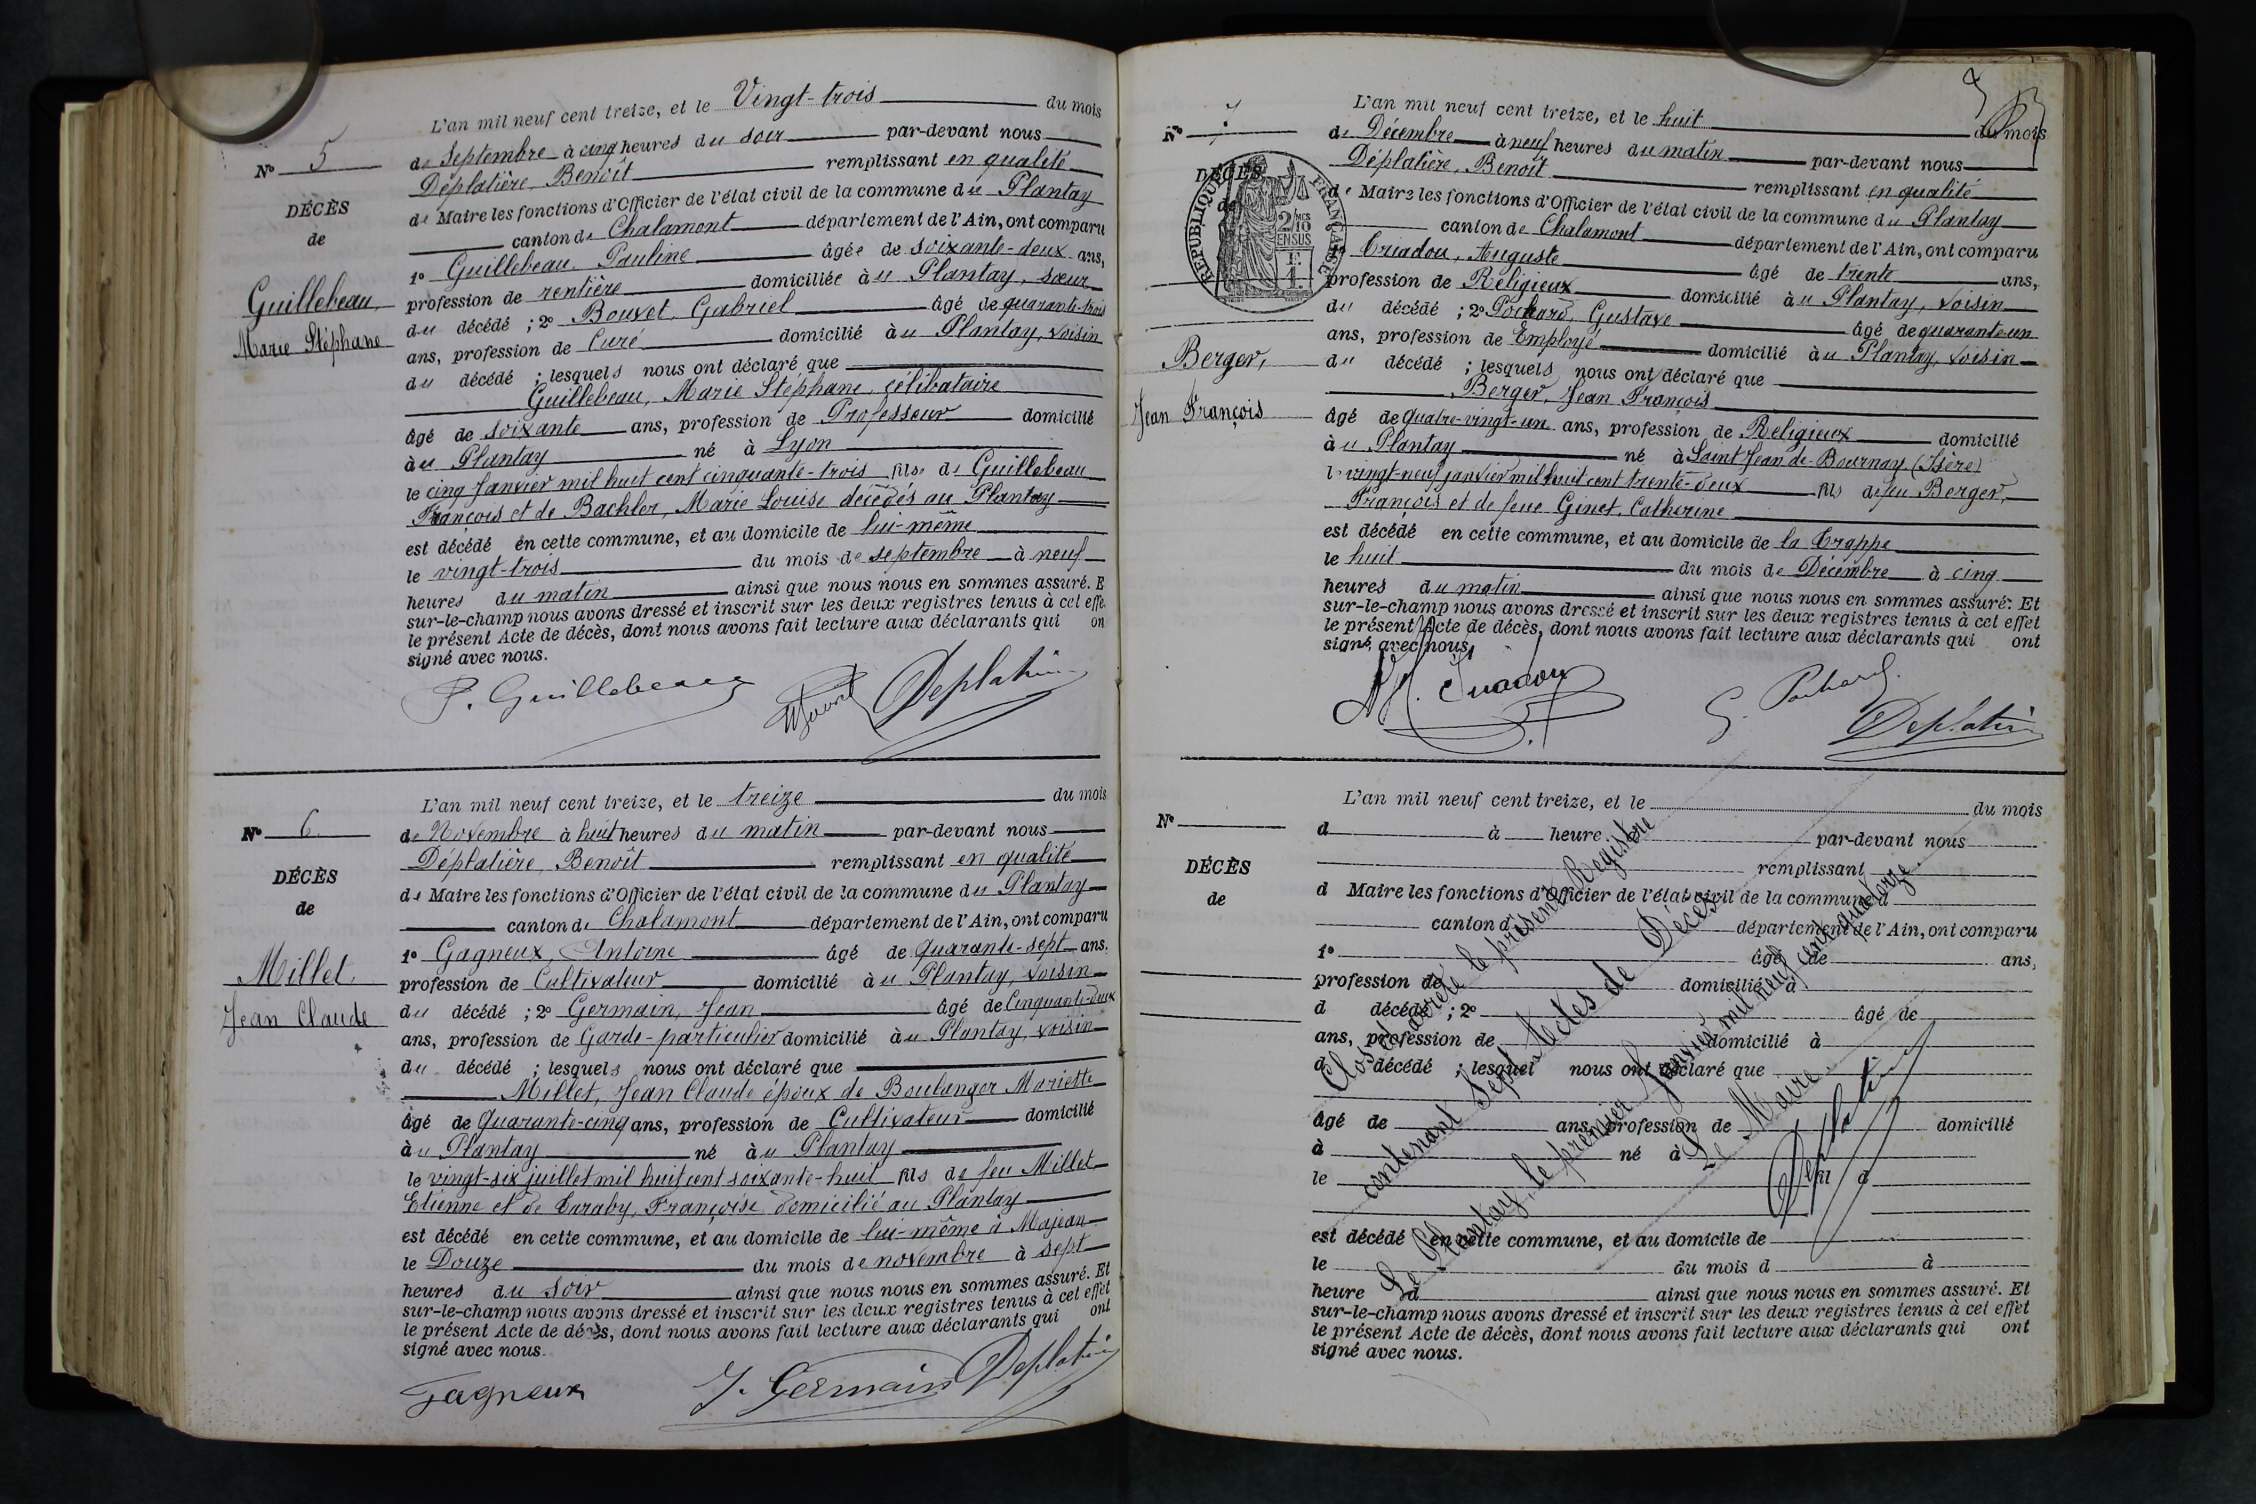 L'an mil neuf cent treize, et le Vingt-trois du mois
N° 5
de Septembre à cinq heures du soir par-devant nous
Déplatière Benoît remplissant en qualité
DÉCÈS
de Maire les fonctions d'Officier de l'état civil de la commune du Plantay
de
canton de Chalamont département de l'Ain, ont comparu
1° Guillebeau, Pauline âgée de soixante-deux ans,
Guillebeau,
profession de rentière domiciliée au Plantay, sœur
du décédé ; 2° Bouvet, Gabriel âgé de quarante-trois
Marie Stéphane
ans, profession de Curé domicilié au Plantay, voisin
du décédé ; lesquels nous ont déclaré que
Guillebeau, Marie Stéphane, célibataire
âgé de soixante ans, profession de Professeur domicilié
au Plantay né à Lyon
le cinq Janvier mil huit cent cinquante-trois fils de Guillebeau
François et de Bachler, Marie Louise décédés au Plantay
est décédé en cette commune, et au domicile de lui-même
le vingt-trois du mois de septembre à neuf
heures du matin ainsi que nous nous en sommes assuré. E
sur-le-champ nous avons dressé et inscrit sur les deux registres tenus à cet effe
le présent Acte de décès, dont nous avons fait lecture aux déclarants qui on
signé avec nous.
P. Guillebeau Deplatière
L'an mil neuf cent treize, et le treize du mois
N° 6
de Novembre à huit heures du matin par-devant nous
Déplatière, Benoît remplissant en qualité
DÉCÈS
de Maire les fonctions d'Officier de l'état civil de la commune du Plantay
de
canton de Chalamont département de l'Ain, ont comparu
1° Gagneux, Antoine âgé de quarante-sept ans.
Millet,
profession de Cultivateur domicilié au Plantay, voisin
Jean Claude
du décédé ; 2° Germain, Jean âgé de Cinquante-deux
ans, profession de Garde-particulier domicilié au Plantay, voisin
du décédé ; lesquels nous ont déclaré que
Millet, Jean Claude époux de Boulanger Mariette
âgé de Quarante-cinq ans, profession de Cultivateur domicilié
au Plantay né au Plantay
le vingt-six juillet mil huit cent soixante-huit fils de feu Millet
Etienne et de Françoise domicilié au Plantay
est décédé en cette commune, et au domicile de lui-même à Majean
le Douze du mois de novembre à sept
heures du soir ainsi que nous nous en sommes assuré. Et
sur-le-champ nous avons dressé et inscrit sur les deux registres tenus à cet effet
le présent Acte de décès, dont nous avons fait lecture aux déclarants qui ont
signé avec nous.
Gagneux J. Germain Deplatière
L'an mil neuf cent treize, et le huit du mois
N° 7
de Décembre à neuf heures du matin par-devant nous
Déplatière, Benoît remplissant en qualité
DÉCÈS
de Maire les fonctions d'Officier de l'état civil de la commune du Plantay
de
canton de Chalamont département de l'Ain, ont comparu
RÉPUBLIQUE FRANÇAISE
2/10
EN SUS
1° Criadou, Auguste âgé de trente ans,
profession de Religieux domicilié au Plantay, voisin
du décédé ; 2° Pochard, Gustave âgé de quarante-un
ans, profession de Employé domicilié au Plantay, voisin
Berger,
du décédé ; lesquels nous ont déclaré que
Berger, Jean François
Jean François
âgé de Quatre-vingt-un ans, profession de Religieux domicilié
au Plantay né à Saint Jean de Bournay (Isère)
le vingt-neuf janvier mil huit cent trente-deux fils de feu Berger,
François et de feue Ginet, Catherine
est décédé en cette commune, et au domicile de la Trappe
le huit du mois de Décembre à cinq
heures du matin ainsi que nous nous en sommes assuré. Et
sur-le-champ nous avons dressé et inscrit sur les deux registres tenus à cet effet
le présent Acte de décès, dont nous avons fait lecture aux déclarants qui ont
signé avec nous.
Criadou G. Pochard Deplatière
L'an mil neuf cent treize, et le du mois
N°
d à heure par-devant nous
remplissant
DÉCÈS
d Maire les fonctions d'Officier de l'état civil de la commune d
de
canton d département de l'Ain, ont comparu
1° âgé de ans,
profession de domicilié à
d décédé ; 2° âgé de
ans, profession de domicilié à
d décédé ; lesquel nous ont déclaré que
âgé de ans, profession de domicilié
à né à
le fil d
est décédé en cette commune, et au domicile de
le du mois d à
heure d ainsi que nous nous en sommes assuré. Et
sur-le-champ nous avons dressé et inscrit sur les deux registres tenus à cet effet
le présent Acte de décès, dont nous avons fait lecture aux déclarants qui ont
signé avec nous.
Clos et arrêté le présent Registre
contenant Sept Actes de Décès
Le Plantay, le premier Janvier mil neuf cent quatorze.
Le Maire
Deplatière